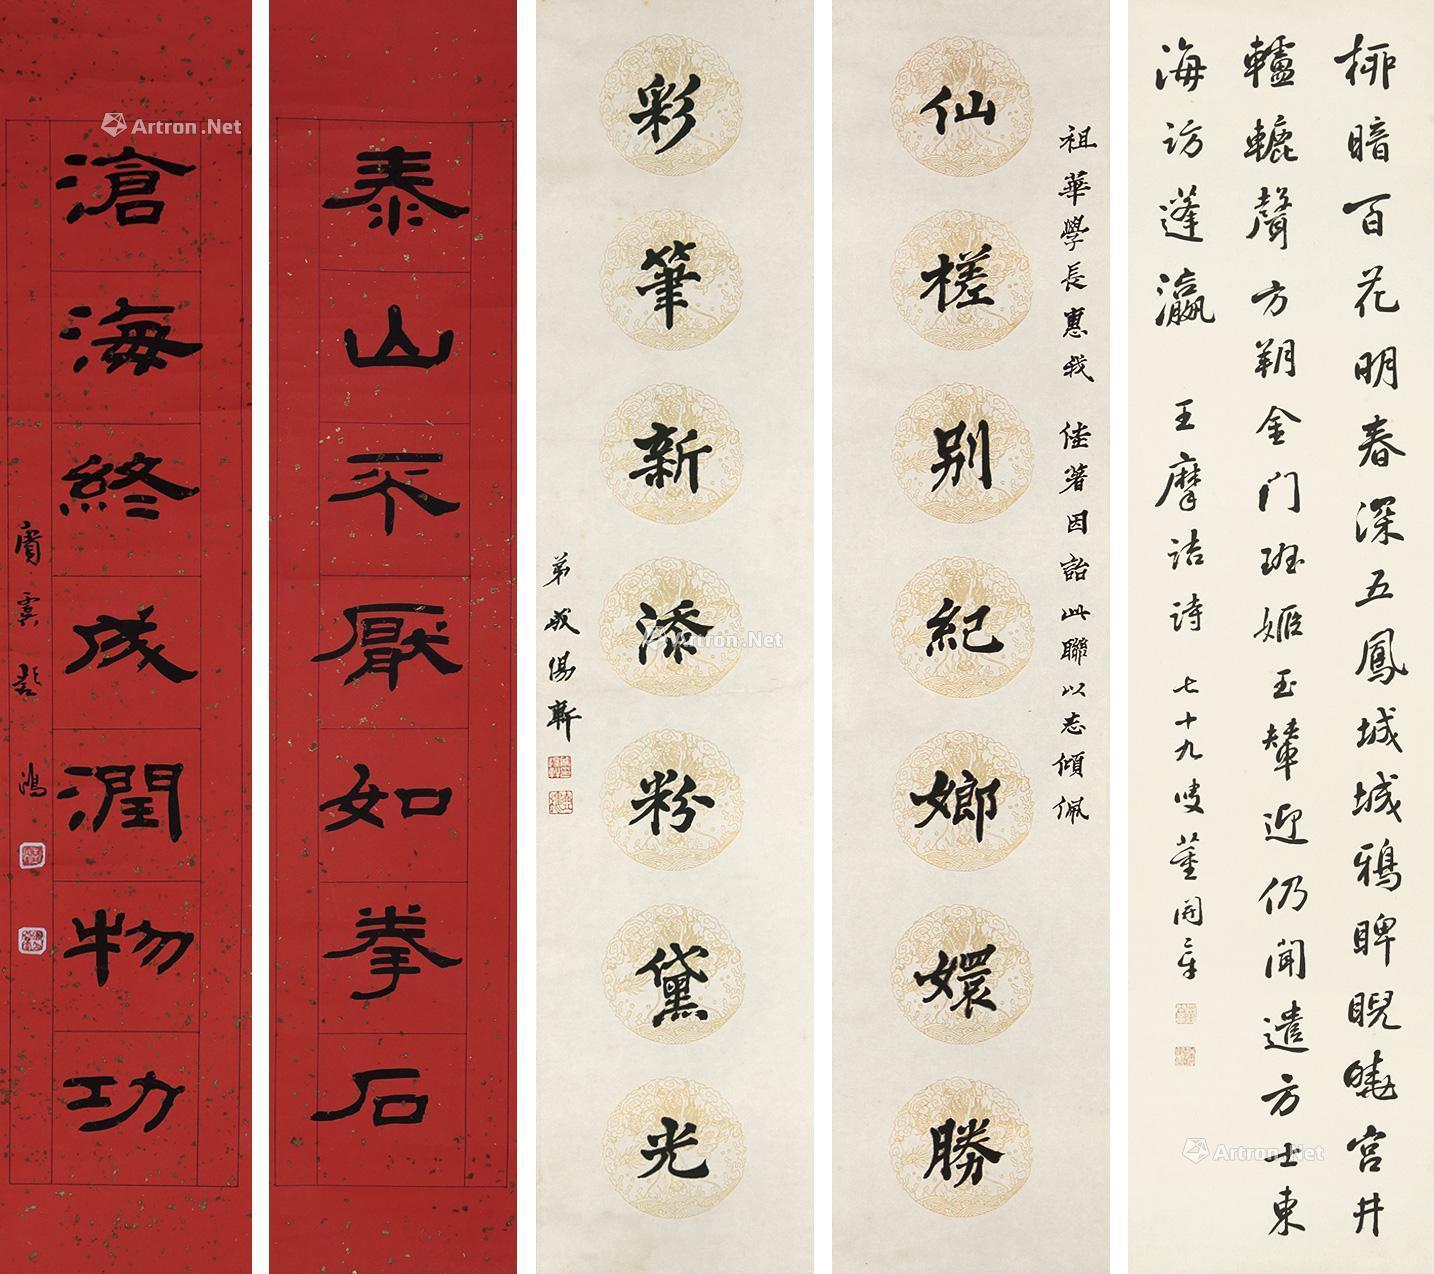 柳暗百花明春深五鳳城城鴉睥睨曉宮井
轤轆聲方朔金门班姬玉輦迎仍闻遣方士東
海访蓬瀛 王摩诘诗 七十九叟董開章
祖華學長惠我 佳著因詒此聯以志傾佩
仙槎別紀嫏嬛勝
彩筆新添粉黛光
弟成惕軒
泰山不厭如拳石
滄海終成潤物功
賓虞彭鴻
Artron.Net
Artron.Net
Artron.Net